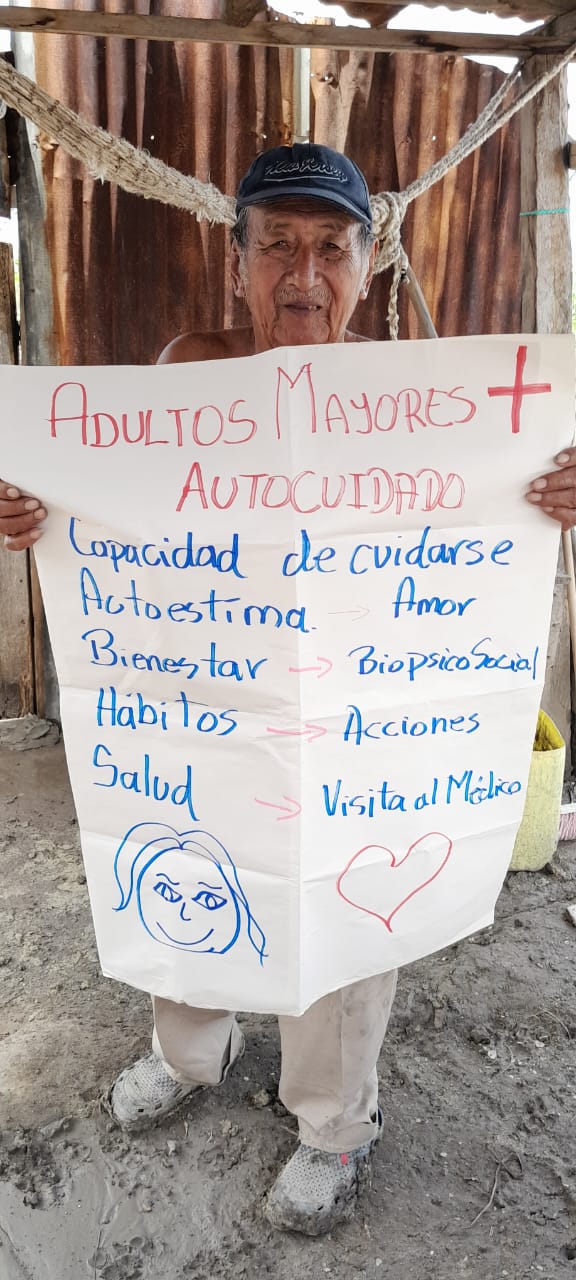 ADULTOS MAYORES +
AUTOCUIDADO
Capacidad de cuidarse
Autoestima. → Amor
Bienestar → BiopsicoSocial
Hábitos → Acciones
Salud → Visita al Médico